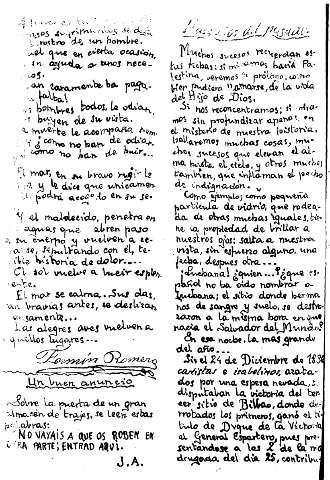 rostro de un hombre.
el que en cierta ocasión,
en ayuda a unos nece-
os.
an caramente ba paga-
falta!
os hombres todos, le odian
huyen de su vista.
a muerte le acompaña
y ¿como no ban de odiar
¿como no ban de huir...
El mar, en su bravo rugir le
y le dice que unicamen-
podrá en su se-
Y el maldecido, penetra en
aguas que abren paso
a su cuerpo y vuelven a ce-
rarse, sepultando con él, te-
rrible historia de dolor...
El sol vuelve a lucir esplen-
ente.
El mar se calma.. Sus olas,
un bravías antes, se deslizan
suavamente...
Las alegres aves vuelven a
quellos lugares...
Fermín Romero
Un buen anuncio
Sobre la puerta de un gran
almacén de trajes, se leen estas
palabras:
NO VAYAIS A QUE OS ROBEN EN
OTRA PARTE; ENTRAD AQUI.
J.A.
del
Muchos sucesos recuerdan es-
tas fechas; si miramos hacia Pa-
lestina, veremos el prólogo, como
bien pudiera llamarse, de la vida
del Hijo de Dios.
Si nos reconcentramos; si
mos sin profundizar apenas en
el misterio de nuestra historia,
hallaremos muchas cosas, mu-
chos sucesos que elevan el al-
ma hasta el cielo, y otros muchos
tambien, que inflaman el pecho
de indignación.
Como ejemplo; como pequeña
particula de vidrio, que rodea-
da de otras muchas iguales, tie-
ne la propiedad de brillar a
nuestros ojos; salta a nuestra
vista, sin esfuerzo alguno, una
fecha, despues otra...
¡Luchana! ¿quien...? ¿que es-
pañol no ba oido nombrar a
Luchana; el sitio donde herma-
nos de sangre y suelo, se destro-
zaron a la misma hora en que
nacia el Salvador del Mundo?
En esa noche, la mas grande
del año...
Si el 24 de Diciembre de 1836
carlistas e isabelinos azota-
dos por una espesa nevada, se
disputaban la victoria del ter-
cer sitio de Bilbao, donde de-
rrotados los primeros, ganó el tí-
tulo de Duque de la Victoria
el General Espartero, pues pre-
sentándose a las 2 de la ma-
drugada del día 25, contribu-